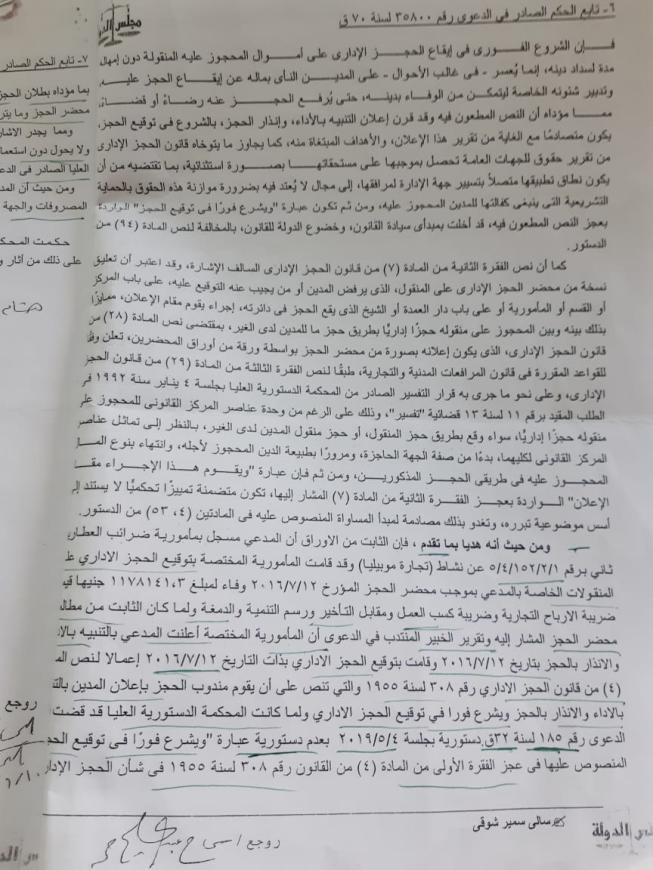 ٦- تابع الحكم الصادر في الدعوى رقم ٣٥٨٠٠ لسنة ٧٠ ق
مجلس الد
فإن الشروع الفورى فى إيقاع الحجز الإدارى على أموال المحجوز عليه المنقولة دون إمهال
مدة لسداد دينه، إنما يُعسر - فى غالب الأحوال - على المدين النأى بماله عن إيقاع الحجز عليه،
وتدبير شئونه الخاصة ليتمكن من الوفاء بدينه، حتى يُرفع الحجز عنه رضاءً أو قضاءً،
مما مؤداه أن النص المطعون فيه وقد قرن إعلان التنبيه بالأداء، وإنذار الحجز، بالشروع فى توقيع الحجز،
يكون متصادمًا مع الغاية من تقرير هذا الإعلان، والأهداف المبتغاة منه، كما يجاوز ما يتوخاه قانون الحجز الإدارى
من تقرير حقوق للجهات العامة تحصل بموجبها على مستحقاتها بصورة استثنائية، بما تقتضيه من أن
يكون نطاق تطبيقها متصلاً بتسيير جهة الإدارة لمرافقها، إلى مجال لا يُعتد فيه بضرورة موازنة هذه الحقوق بالحماية
التشريعية التى ينبغى كفالتها للمدين المحجوز عليه، ومن ثم تكون عبارة "ويشرع فورًا فى توقيع الحجز" الواردة
بعجز النص المطعون فيه، قد أخلت بمبدأى سيادة القانون، وخضوع الدولة للقانون، بالمخالفة لنص المادة (٩٤) من
الدستور.
كما أن نص الفقرة الثانية من المادة (٧) من قانون الحجز الإدارى السالف الإشارة، وقد اعتبر أن تعليق
نسخة من محضر الحجز الإدارى على المنقول، الذى يرفض المدين أو من يجيب عنه التوقيع عليه، على باب المركز
أو القسم أو المأمورية أو على باب دار العمدة أو الشيخ الذى يقع الحجز فى دائرته، إجراء يقوم مقام الإعلان، ممايزًا
بذلك بينه وبين المحجوز على منقوله حجزًا إداريًا بطريق حجز ما للمدين لدى الغير، بمقتضى نص المادة (٢٨) من
قانون الحجز الإدارى، الذى يكون إعلانه بصورة من محضر الحجز بواسطة ورقة من أوراق المحضرين، تعلن وفقًا
للقواعد المقررة فى قانون المرافعات المدنية والتجارية، طبقًا لنص الفقرة الثالثة من المادة (٢٩) من قانون الحجز
الإدارى، وعلى نحو ما جرى به قرار التفسير الصادر من المحكمة الدستورية العليا بجلسة ٤ يناير سنة ١٩٩٢ فى
الطلب المقيد برقم ١١ لسنة ١٣ قضائية "تفسير"، وذلك على الرغم من وحدة عناصر المركز القانونى للمحجوز على
منقوله حجزًا إداريًا، سواء وقع بطريق حجز المنقول، أو حجز منقول المدين لدى الغير، بالنظر إلى تماثل عناصر
المركز القانونى لكليهما، بدءًا من صفة الجهة الحاجزة، ومرورًا بطبيعة الدين المحجوز لأجله، وانتهاء بنوع المال
المحجوز عليه فى طريقى الحجز المذكورين، ومن ثم فإن عبارة "ويقوم هذا الإجراء مقا
الإعلان" الواردة بعجز الفقرة الثانية من المادة (٧) المشار إليها، تكون متضمنة تمييزًا تحكميًا لا يستند إلى
أسس موضوعية تبرره، وتغدو بذلك مصادمة لمبدأ المساواة المنصوص عليه فى المادتين (٤، ٥٣) من الدستور.
ومن حيث أنه هديا بما تقدم ، فإن الثابت من الاوراق أن المدعي مسجل بمأمورية ضرائب العطارين
ثاني برقم ٥/٤/١٥٢/٢/١ عن نشاط (تجارة موبيليا) وقد قامت المأمورية المختصة بتوقيع الحجز الاداري على
المنقولات الخاصة بالمدعي بموجب محضر الحجز المؤرخ ٢٠١٦/٧/١٢ وفاء لمبلغ ١١٧٨١٤١,٣ جنيها قيمة
ضريبة الارباح التجارية وضريبة كسب العمل ومقابل التأخير ورسم التنمية والدمغة ولما كان الثابت من مطالعة
محضر الحجز المشار إليه وتقرير الخبير المنتدب في الدعوى أن المأمورية المختصة أعلنت المدعي بالتنبيه بالاداء
والانذار بالحجز بتاريخ ٢٠١٦/٧/١٢ وقامت بتوقيع الحجز الاداري بذات التاريخ ٢٠١٦/٧/١٢ إعمالا لنص المادة
(٤) من قانون الحجز الاداري رقم ٣٠٨ لسنة ١٩٥٥ والتي تنص على أن يقوم مندوب الحجز بإعلان المدين بالتنبيه
بالاداء والانذار بالحجز ويشرع فورا في توقيع الحجز الاداري ولما كانت المحكمة الدستورية العليا قد قضت
الدعوى رقم ١٨٥ لسنة ٣٢ق دستورية بجلسة ٢٠١٩/٥/٤ بعدم دستورية عبارة "ويشرع فورًا فى توقيع الحجز
المنصوص عليها فى عجز الفقرة الأولى من المادة (٤) من القانون رقم ٣٠٨ لسنة ١٩٥٥ فى شأن الحجز الإدارى
سالى سمير شوقى
روجع
مجلس الدولة
٧- تابع الحكم الصادر
بما مؤداه بطلان الحجز
محضر الحجز وما يتر
ومما يجدر الاشار
ولا يحول دون استعما
العليا الصادر في الدع
ومن حيث أن المد
المصروفات والجهة
حكمت المحك
على ذلك من آثار و
روجع